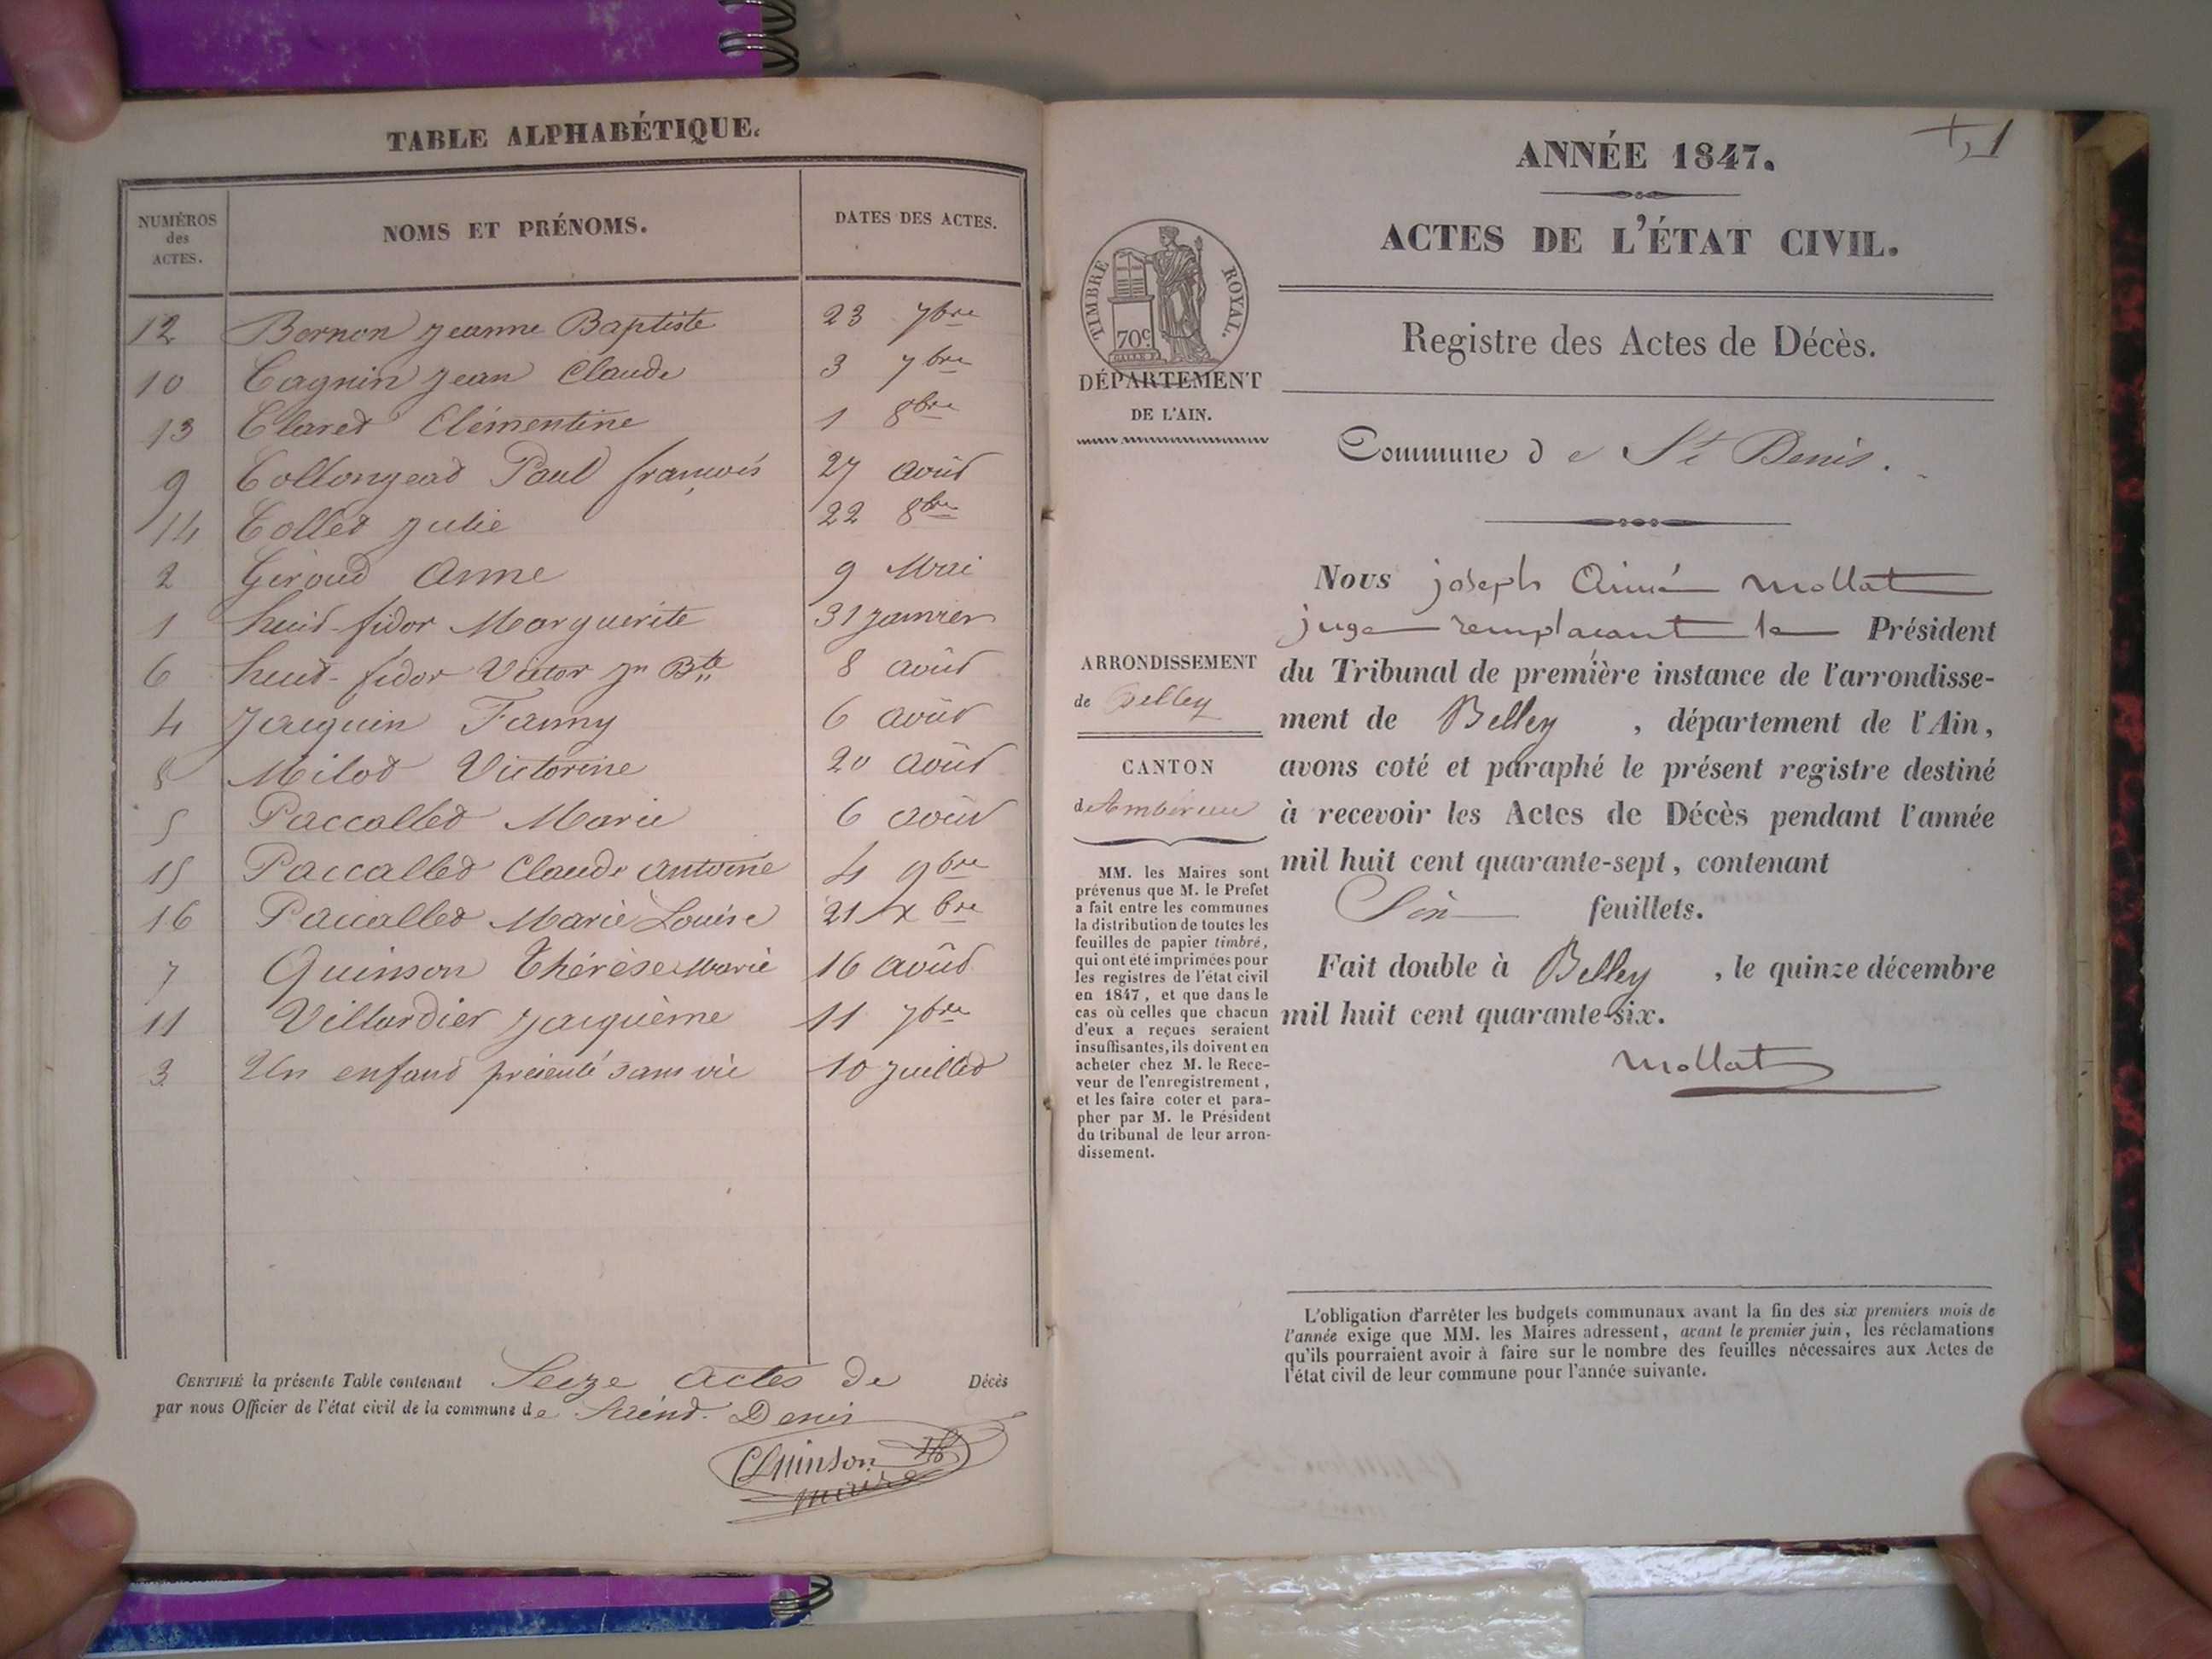 TABLE ALPHABÉTIQUE.
NUMÉROS des ACTES.
NOMS ET PRÉNOMS.
DATES DES ACTES.
12 Bernon Jeanne Baptiste 23 7bre
10 Cagnin Jean Claude 3 7bre
13 Claret Clémentine 1 8bre
9 Collongeat Paul françois 27 août
14 Collet Julie 22 8bre
2 Giroud Anne 9 Mai
1 huid-fidor Marguerite 31 janvier
6 huid-fidor Victor Jn Bte 8 août
4 Jacquin Fanny 6 août
8 Milot Victorine 20 août
5 Paccallet Marie 6 août
15 Paccallet Claude Antoine 4 9bre
16 Paccallet Marie Louise 21 Xbre
7 Quinson Thérèse Marie 16 août
11 Villardier Jacquème 11 7bre
3 Un enfant présenté sans vie 10 juillet
CERTIFIÉ la présente Table contenant Seize actes de Décès
par nous Officier de l'état civil de la commune de Saint-Denis
Quinson
maire
+,1
ANNÉE 1847.
ACTES DE L'ÉTAT CIVIL.
TIMBRE ROYAL.
70c
DÉPARTEMENT
DE L'AIN.
Registre des Actes de Décès.
Commune de St Denis.
ARRONDISSEMENT
de Belley
CANTON
d'Ambérieu
MM. les Maires sont
prévenus que M. le Préfet
a fait entre les communes
la distribution de toutes les
feuilles de papier timbré,
qui ont été imprimées pour
les registres de l'état civil
en 1847, et que dans le
cas où celles que chacun
d'eux a reçues seraient
insuffisantes, ils doivent en
acheter chez M. le Rece-
veur de l'enregistrement,
et les faire coter et para-
pher par M. le Président
du tribunal de leur arron-
dissement.
Nous joseph Aimé Mollat
juge remplaçant le Président
du Tribunal de première instance de l'arrondisse-
ment de Belley, département de l'Ain,
avons coté et paraphé le présent registre destiné
à recevoir les Actes de Décès pendant l'année
mil huit cent quarante-sept, contenant
feuillets.
Fait double à Belley, le quinze décembre
mil huit cent quarante-six.
Mollat
L'obligation d'arrêter les budgets communaux avant la fin des six premiers mois de
l'année exige que MM. les Maires adressent, avant le premier juin, les réclamations
qu'ils pourraient avoir à faire sur le nombre des feuilles nécessaires aux Actes de
l'état civil de leur commune pour l'année suivante.